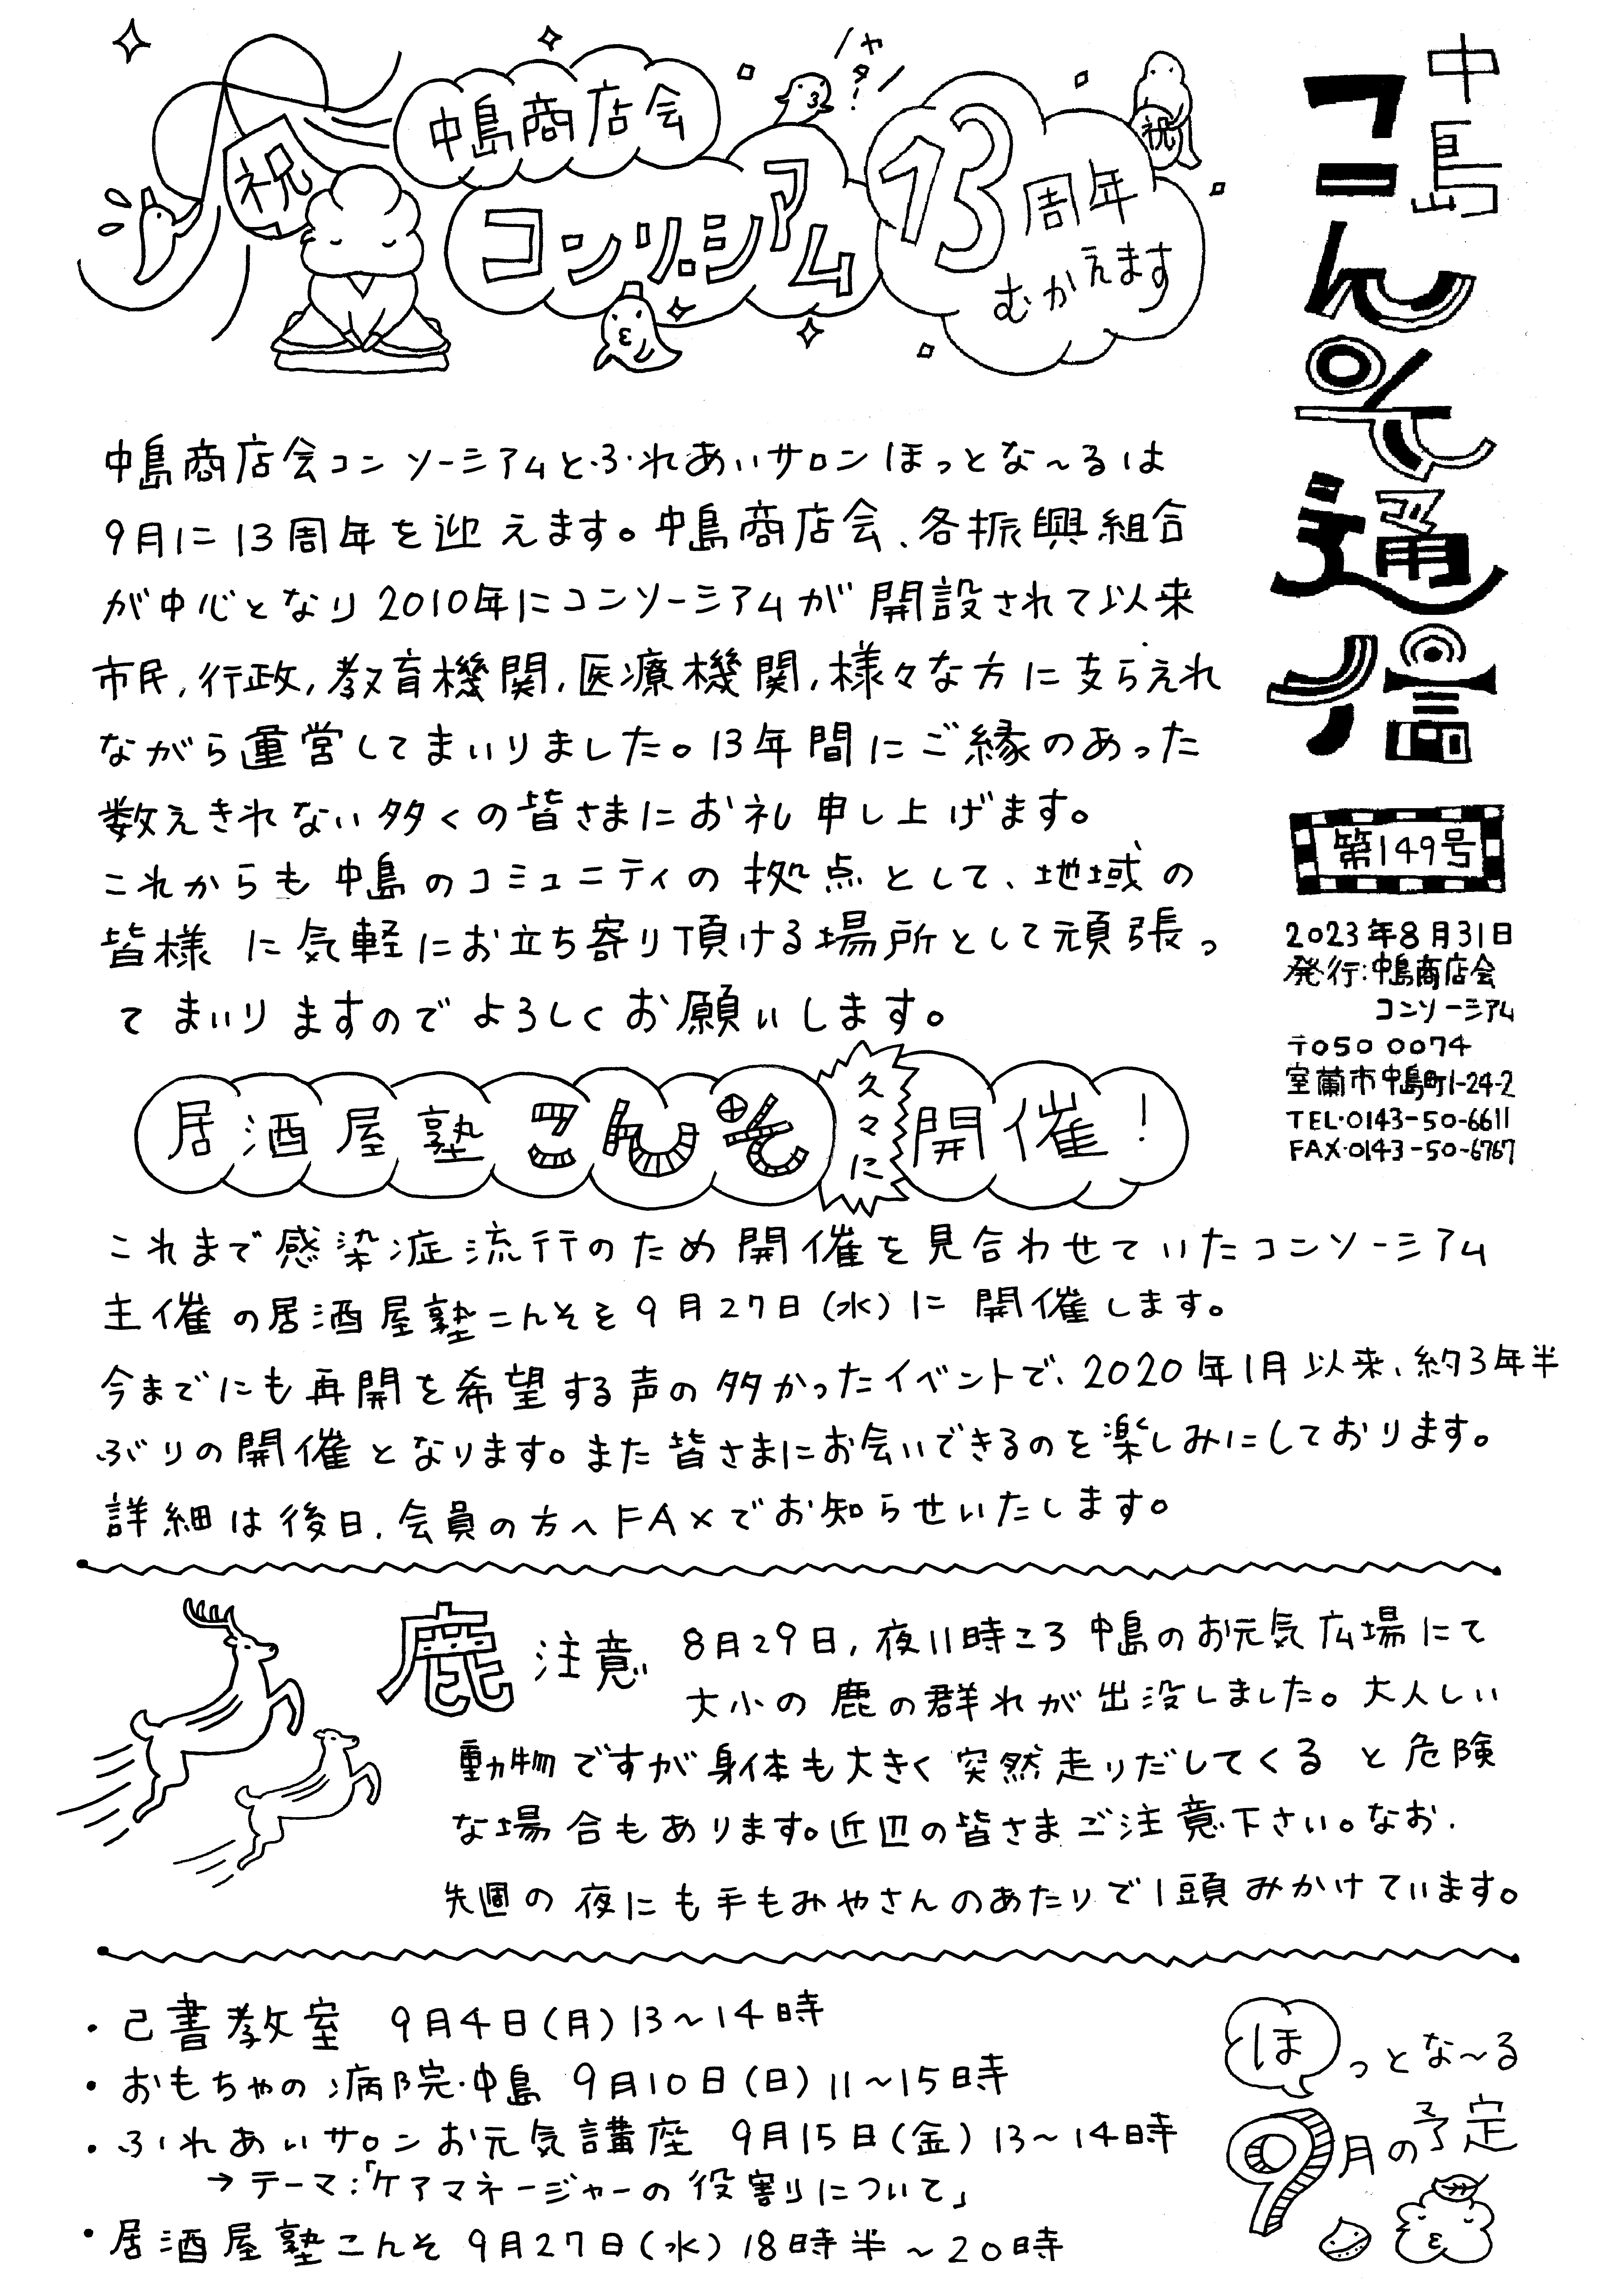 中島
こんそ通信
第149号
2023年8月31日
発行:中島商店会
コンソーシアム
〒050 0074
室蘭市中島町1-24-2
TEL・0143-50-6611
FAX・0143-50-6767
祝
中島商店会
コンソーシアム
ヤター!
13周年
むかえます
祝
中島商店会コンソーシアムとふれあいサロンほっとな〜るは
9月に13周年を迎えます。中島商店会、各振興組合
が中心となり2010年にコンソーシアムが開設されて以来
市民,行政,教育機関,医療機関,様々な方に支らえれ
ながら運営してまいりました。13年間にご縁のあった
数えきれない多くの皆さまにお礼申し上げます。
これからも中島のコミュニティの拠点として、地域の
皆様に気軽にお立ち寄り頂ける場所として頑張っ
てまいりますのでよろしくお願いします。
居酒屋塾こんそ久々に開催!
これまで感染症流行のため開催を見合わせていたコンソーシアム
主催の居酒屋塾こんそを9月27日(水)に開催します。
今までにも再開を希望する声の多かったイベントで、2020年1月以来、約3年半
ぶりの開催となります。また皆さまにお会いできるのを楽しみにしております。
詳細は後日,会員の方へFAXでお知らせいたします。
鹿注意
8月29日,夜11時ころ中島のお元気広場にて
大小の鹿の群れが出没しました。大人しい
動物ですが身体も大きく突然走りだしてくると危険
な場合もあります。近辺の皆さまご注意下さい。なお、
先週の夜にも手もみやさんのあたりで1頭みかけています。
・己書教室 9月4日(月)13〜14時
・おもちゃの病院・中島 9月10日(日)11〜15時
・ふれあいサロンお元気講座 9月15日(金)13〜14時
→テーマ:「ケアマネージャーの役割りについて」
・居酒屋塾こんそ 9月27日(水)18時半〜20時
ほっとな〜る
9月の予定